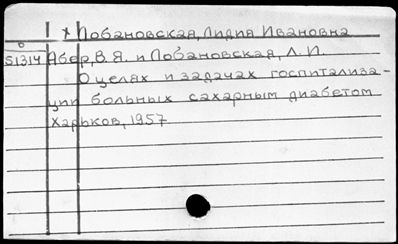 х Лобановская, Лидия Ивановна
51314 Абер, В. Я. и Лобановская, Л. И.
О целях и задачах госпитализа-
ции больных сахарным диабетом
Харьков, 1957